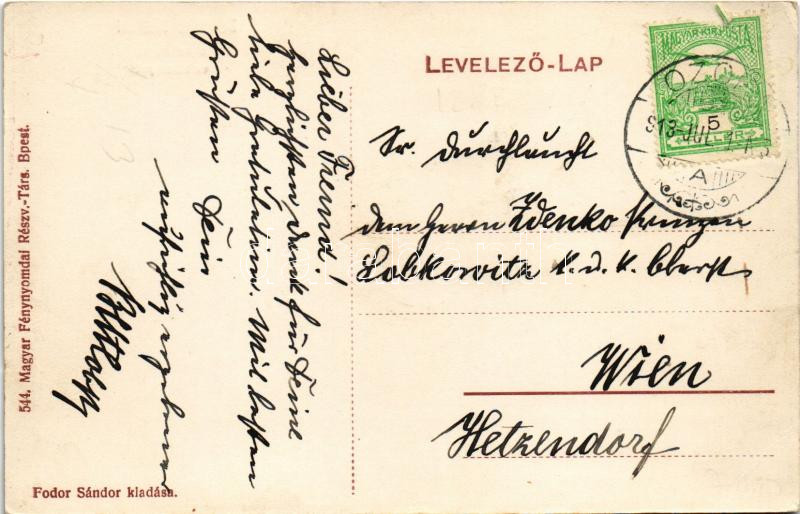 LEVELEZŐ-LAP
MAGYAR·KIR·POSTA
5
Sr. Durchlaucht
dem Herrn Zdenko Prinzen
Lobkowitz k. u. k. Oberst
Wien
Hetzendorf
Lieber Freund!
herzlichsten Dank für Deine
liebe Gratulation. Mit besten
Grüssen Dein
aufrichtig ergebener
544. Magyar Fénynyomdai Részv.-Társ. Bpest.
Fodor Sándor kiadása.